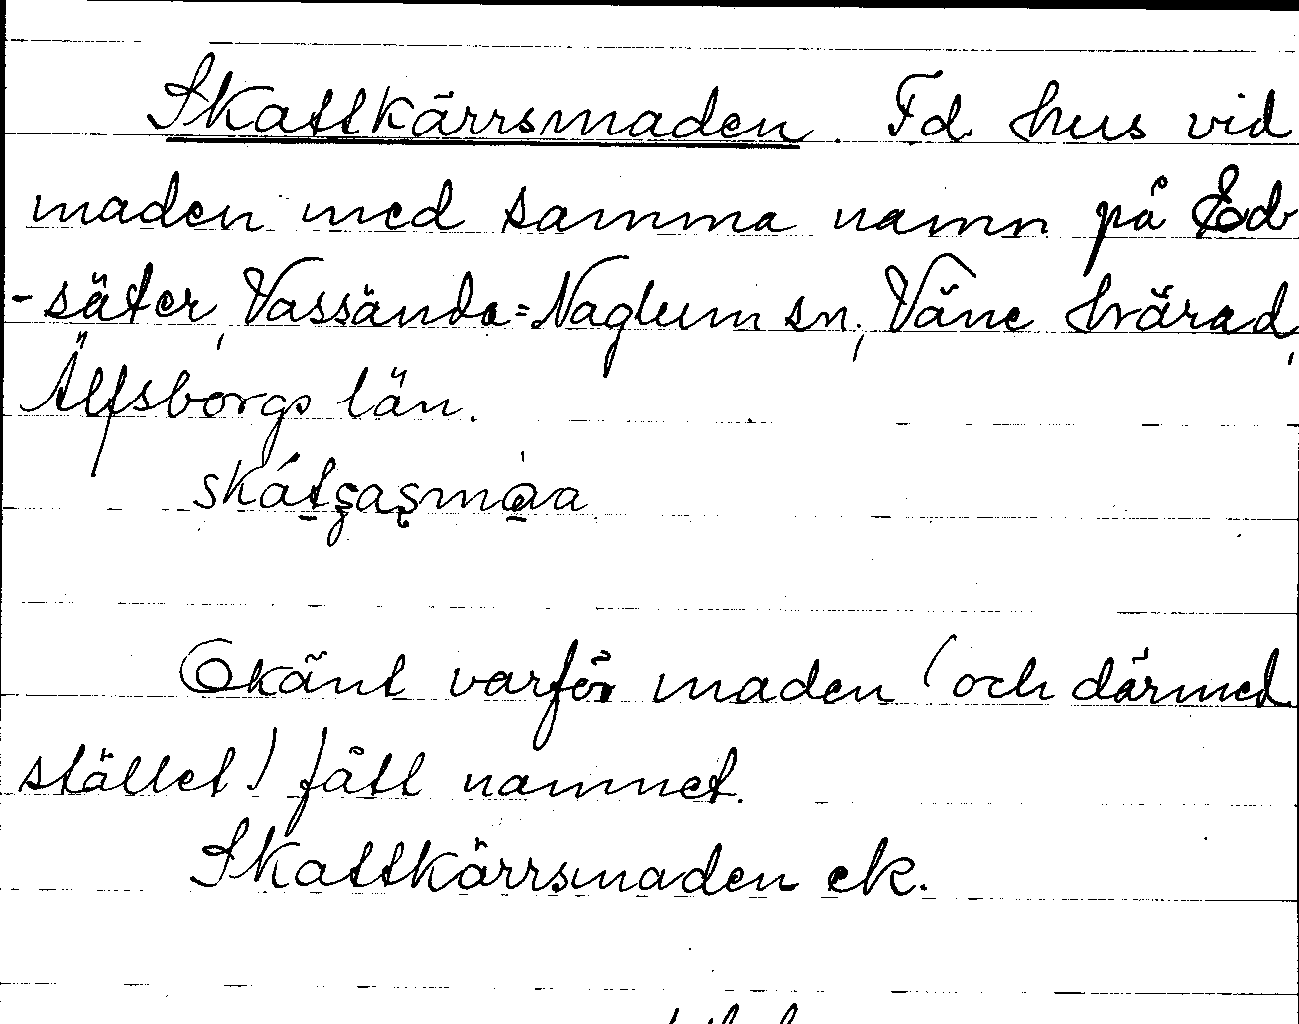 Skattkärrsmaden. Fd. hus vid
maden med samma namn på Ed-
-säter, Vassända=Naglum sn, Väne härad,
Älfsborgs län.
skátşaşmàva
Okänt varför maden (och därmed
stället) fått namnet.
Skattkärrsmaden ek.